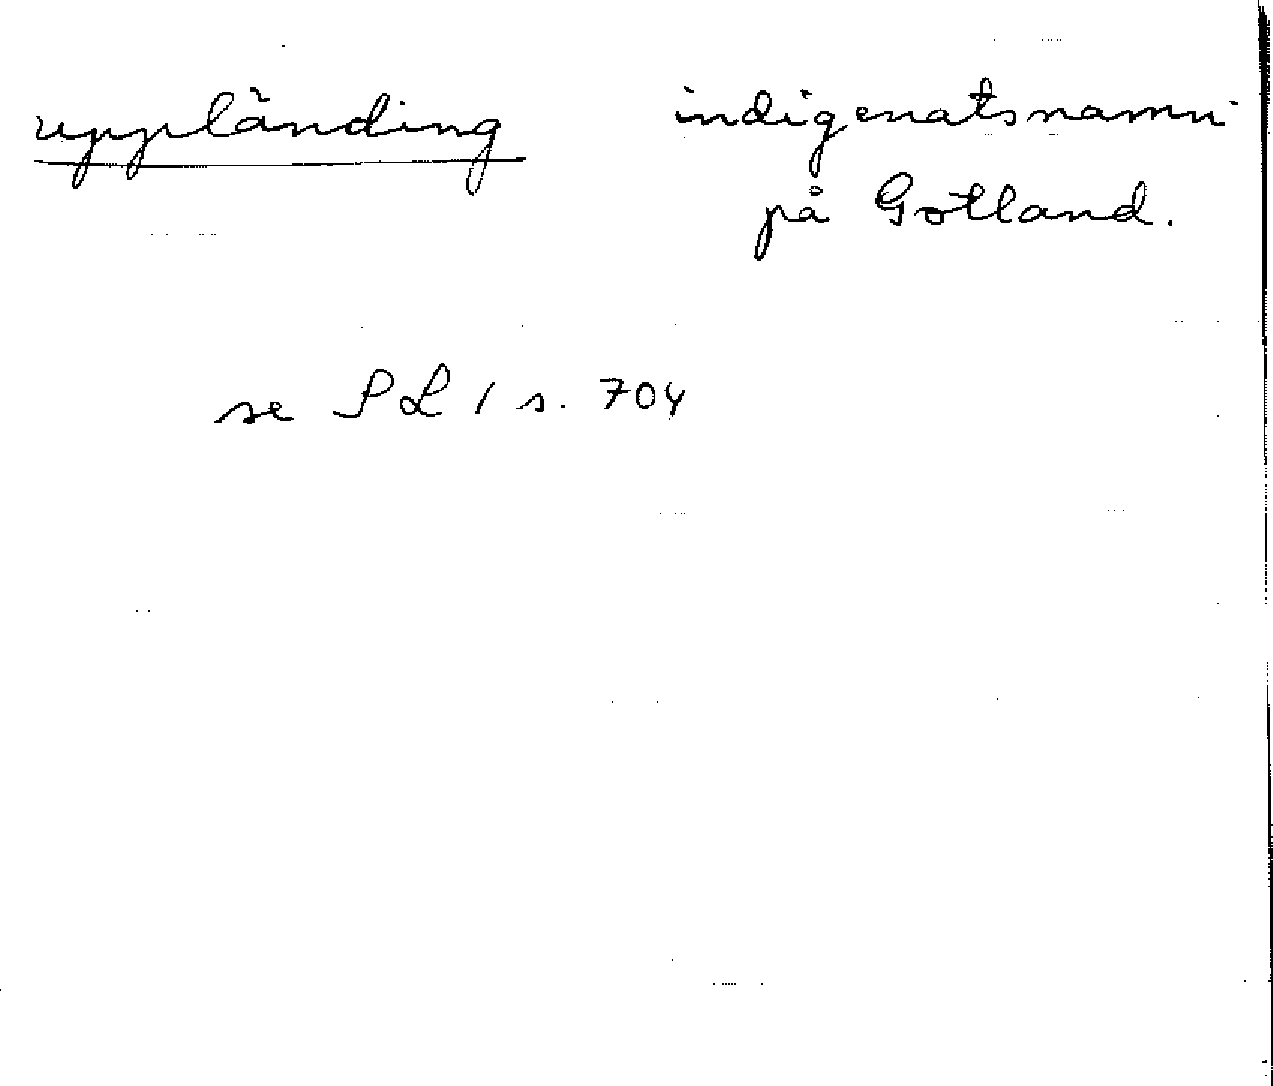 uppländing
indigenatsnamn
på Gotland.
se PL 1 s. 704